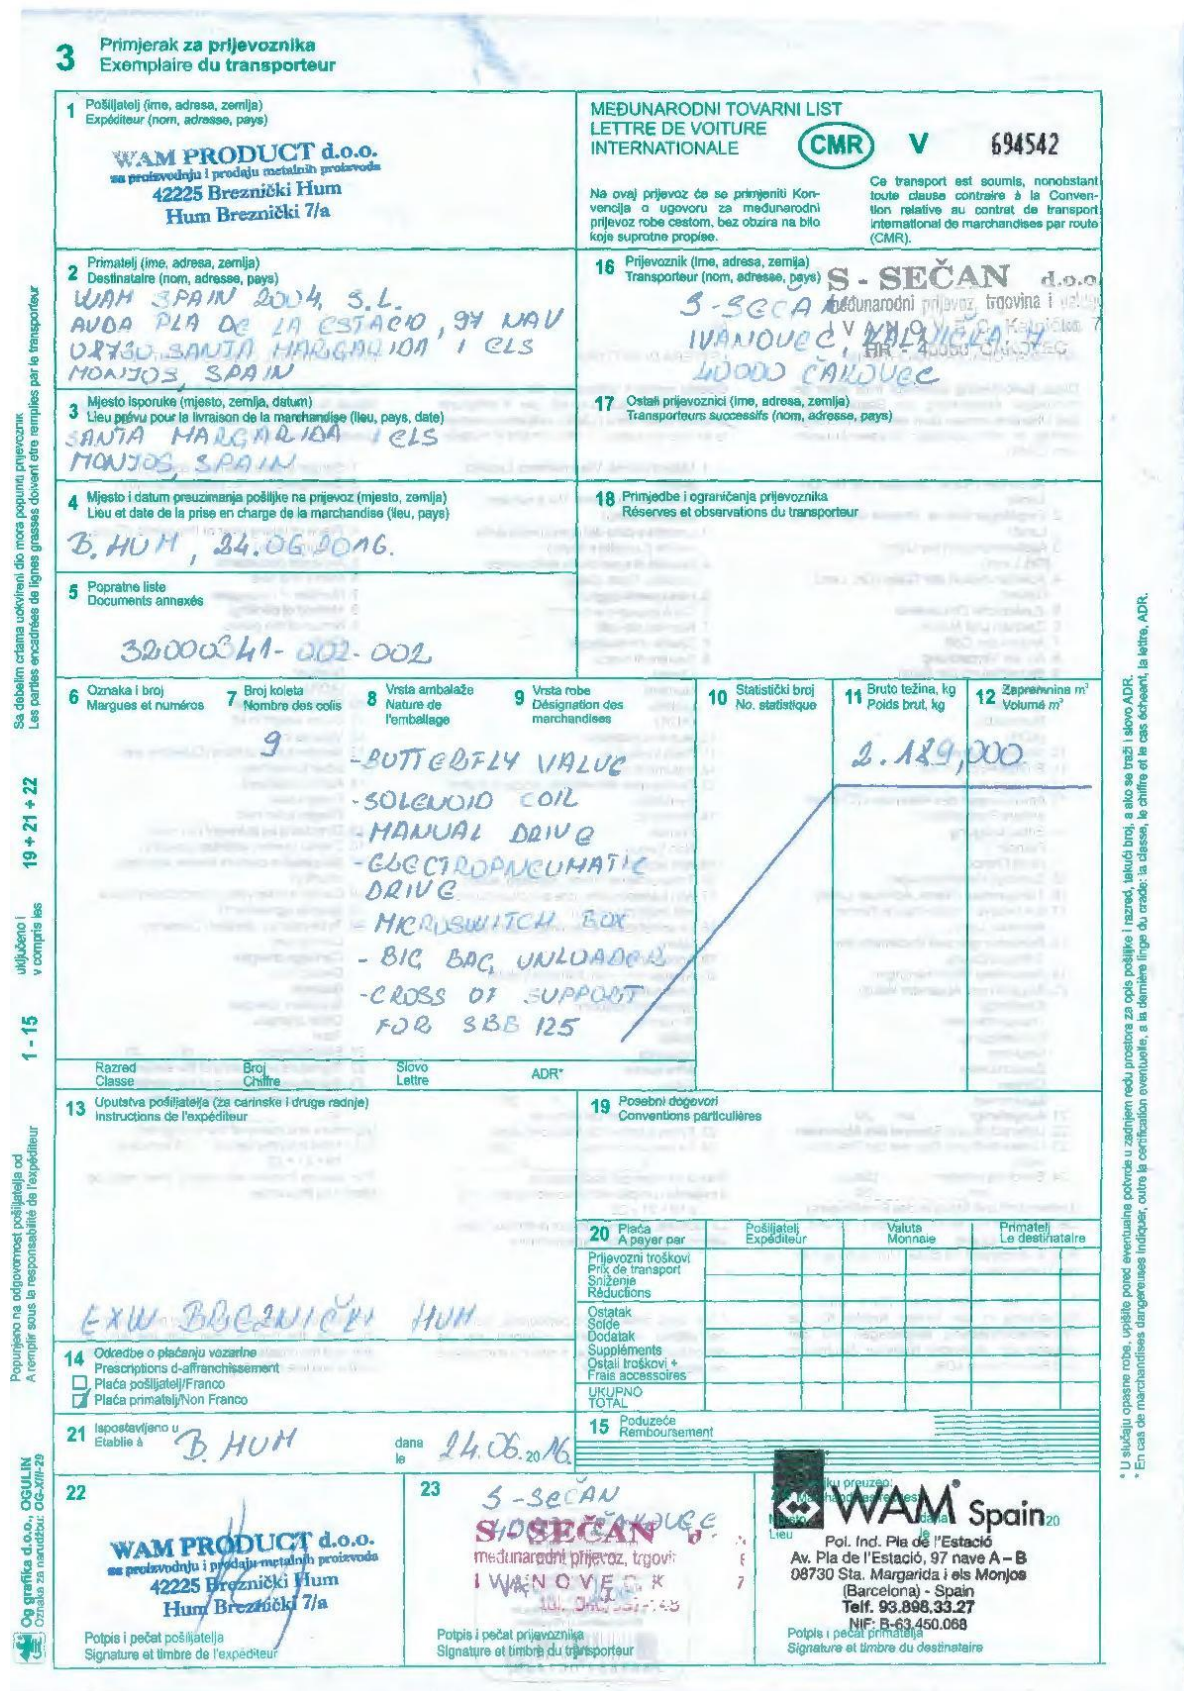 3 Primjerak za prijevoznika
Exemplaire du transporteur
1 Pošiljatelj (ime, adresa, zemlja)
Expéditeur (nom, adresse, pays)
WAM PRODUCT d.o.o.
za proizvodnju i prodaju metalnih proizvoda
42225 Breznički Hum
Hum Breznički 7/a
MEĐUNARODNI TOVARNI LIST
LETTRE DE VOITURE
INTERNATIONALE
CMR V 694542
Na ovaj prijevoz će se primjeniti Kon-
vencija o ugovoru za međunarodni
prijevoz robe cestom, bez obzira na bilo
koje suprotne propise.
Ce transport est soumis, nonobstant
toute clause contraire à la Conven-
tion relative au contrat de transport
international de marchandises par route
(CMR).
2 Primatelj (ime, adresa, zemlja)
Destinataire (nom, adresse, pays)
WAM SPAIN 2004, S.L.
AVDA PLA DE LA ESTACIO, 97 NAV
08730 SANTA MARGARIDA I ELS
MONJOS, SPAIN
16 Prijevoznik (ime, adresa, zemlja)
Transporteur (nom, adresse, pays)
S - SEČAN d.o.o
međunarodni prijevoz, trgovina i
S-SEČA
IVANOVEC,
40000 ČAKOVEC
3 Mjesto isporuke (mjesto, zemlja, datum)
Lieu prévu pour la livraison de la marchandise (lieu, pays, date)
SANTA MARGARIDA I ELS
MONJOS, SPAIN
17 Ostali prijevoznici (ime, adresa, zemlja)
Transporteurs successifs (nom, adresse, pays)
4 Mjesto i datum preuzimanja pošiljke na prijevoz (mjesto, zemlja)
Lieu et date de la prise en charge de la marchandise (lieu, pays)
B. HUM, 24.06.2016.
18 Primjedbe i ograničenja prijevoznika
Réserves et observations du transporteur
5 Popratne liste
Documents annexés
32000341-002-002
6 Oznaka i broj
Margues et numéros
7 Broj koleta
Nombre des colis
8 Vrsta ambalaže
Nature de
l'emballage
9 Vrsta robe
Désignation des
marchandises
10 Statistički broj
No. statistique
11 Bruto težina, kg
Poids brut, kg
12 Zapremnina m³
Volumé m³
9
2.189,000
-BUTTERFLY VALUE
-SOLENOID COIL
-MANUAL DRIVE
-ELECTROPNEUMATIC
DRIVE
- MICROSWITCH BOX
- BIG BAG UNLOADER
-CROSS OF SUPPORT
FOR SBB 125
Razred
Classe
Broj
Chiffre
Slovo
Lettre
ADR*
13 Uputstva pošiljatelja (za carinske i druge radnje)
Instructions de l'expéditeur
EXW BREZNIČKI HUM
19 Posebni dogovori
Conventions particulières
20 Plaća
A payer par
Pošiljatelj
Expéditeur
Valuta
Monnaie
Primatelj
Le destinataire
Prijevozni troškovi
Prix de transport
Sniženje
Réductions
Ostatak
Solde
Dodatak
Suppléments
Ostali troškovi +
Frais accessoires
UKUPNO
TOTAL
14 Odredbe o plaćanju vozarine
Prescriptions d-affranchissement
Plaća pošiljatelj/Franco
Plaća primatelj/Non Franco
15 Poduzeće
Remboursement
21 Ispostavljeno u
Etablie à
B. HUM
dana
le
24.06.2016.
22
WAM PRODUCT d.o.o.
za proizvodnju i prodaju metalnih proizvoda
42225 Breznički Hum
Hum Breznički 7/a
Potpis i pečat pošiljatelja
Signature et timbre de l'expéditeur
23
S-SEČAN
40000 ČAKOVEC
S-SEČAN d
međunarodni prijevoz, trgovi
Potpis i pečat prijevoznika
Signature et timbre du transporteur
WAM® Spain
20
Lieu
Pol. Ind. Pla de l'Estació
Av. Pla de l'Estació, 97 nave A – B
08730 Sta. Margarida i els Monjos
(Barcelona) - Spain
Telf. 93.898.33.27
NIF: B-63.450.068
Potpis i pečat primatelja
Signature et timbre du destinataire
Sa debelim crtama uokvireni dio mora popuniti prijevoznik
Les parties encadrées de lignes grasses doivent etre remplies par le transporteur
19 + 21 + 22
uključeno i
y compris les
1 - 15
Popunjeno na odgovornost pošiljatelja od
A remplir sous la responsabilité de l'expéditeur
Og grafika d.o.o., OGULIN
Oznaka za narudžbu: OG-XIII-29
* U slučaju opasne robe, upišite pored eventualne potvrde u zadnjem redu prostora za opis pošiljke i razred, tekući broj, a ako se traži i slovo ADR.
* En cas de marchandises dangereuses indiquer, outre la certification eventuelle, a la dernière linge du crade: la classe, le chiffre et le cas échéant, la lettre, ADR.